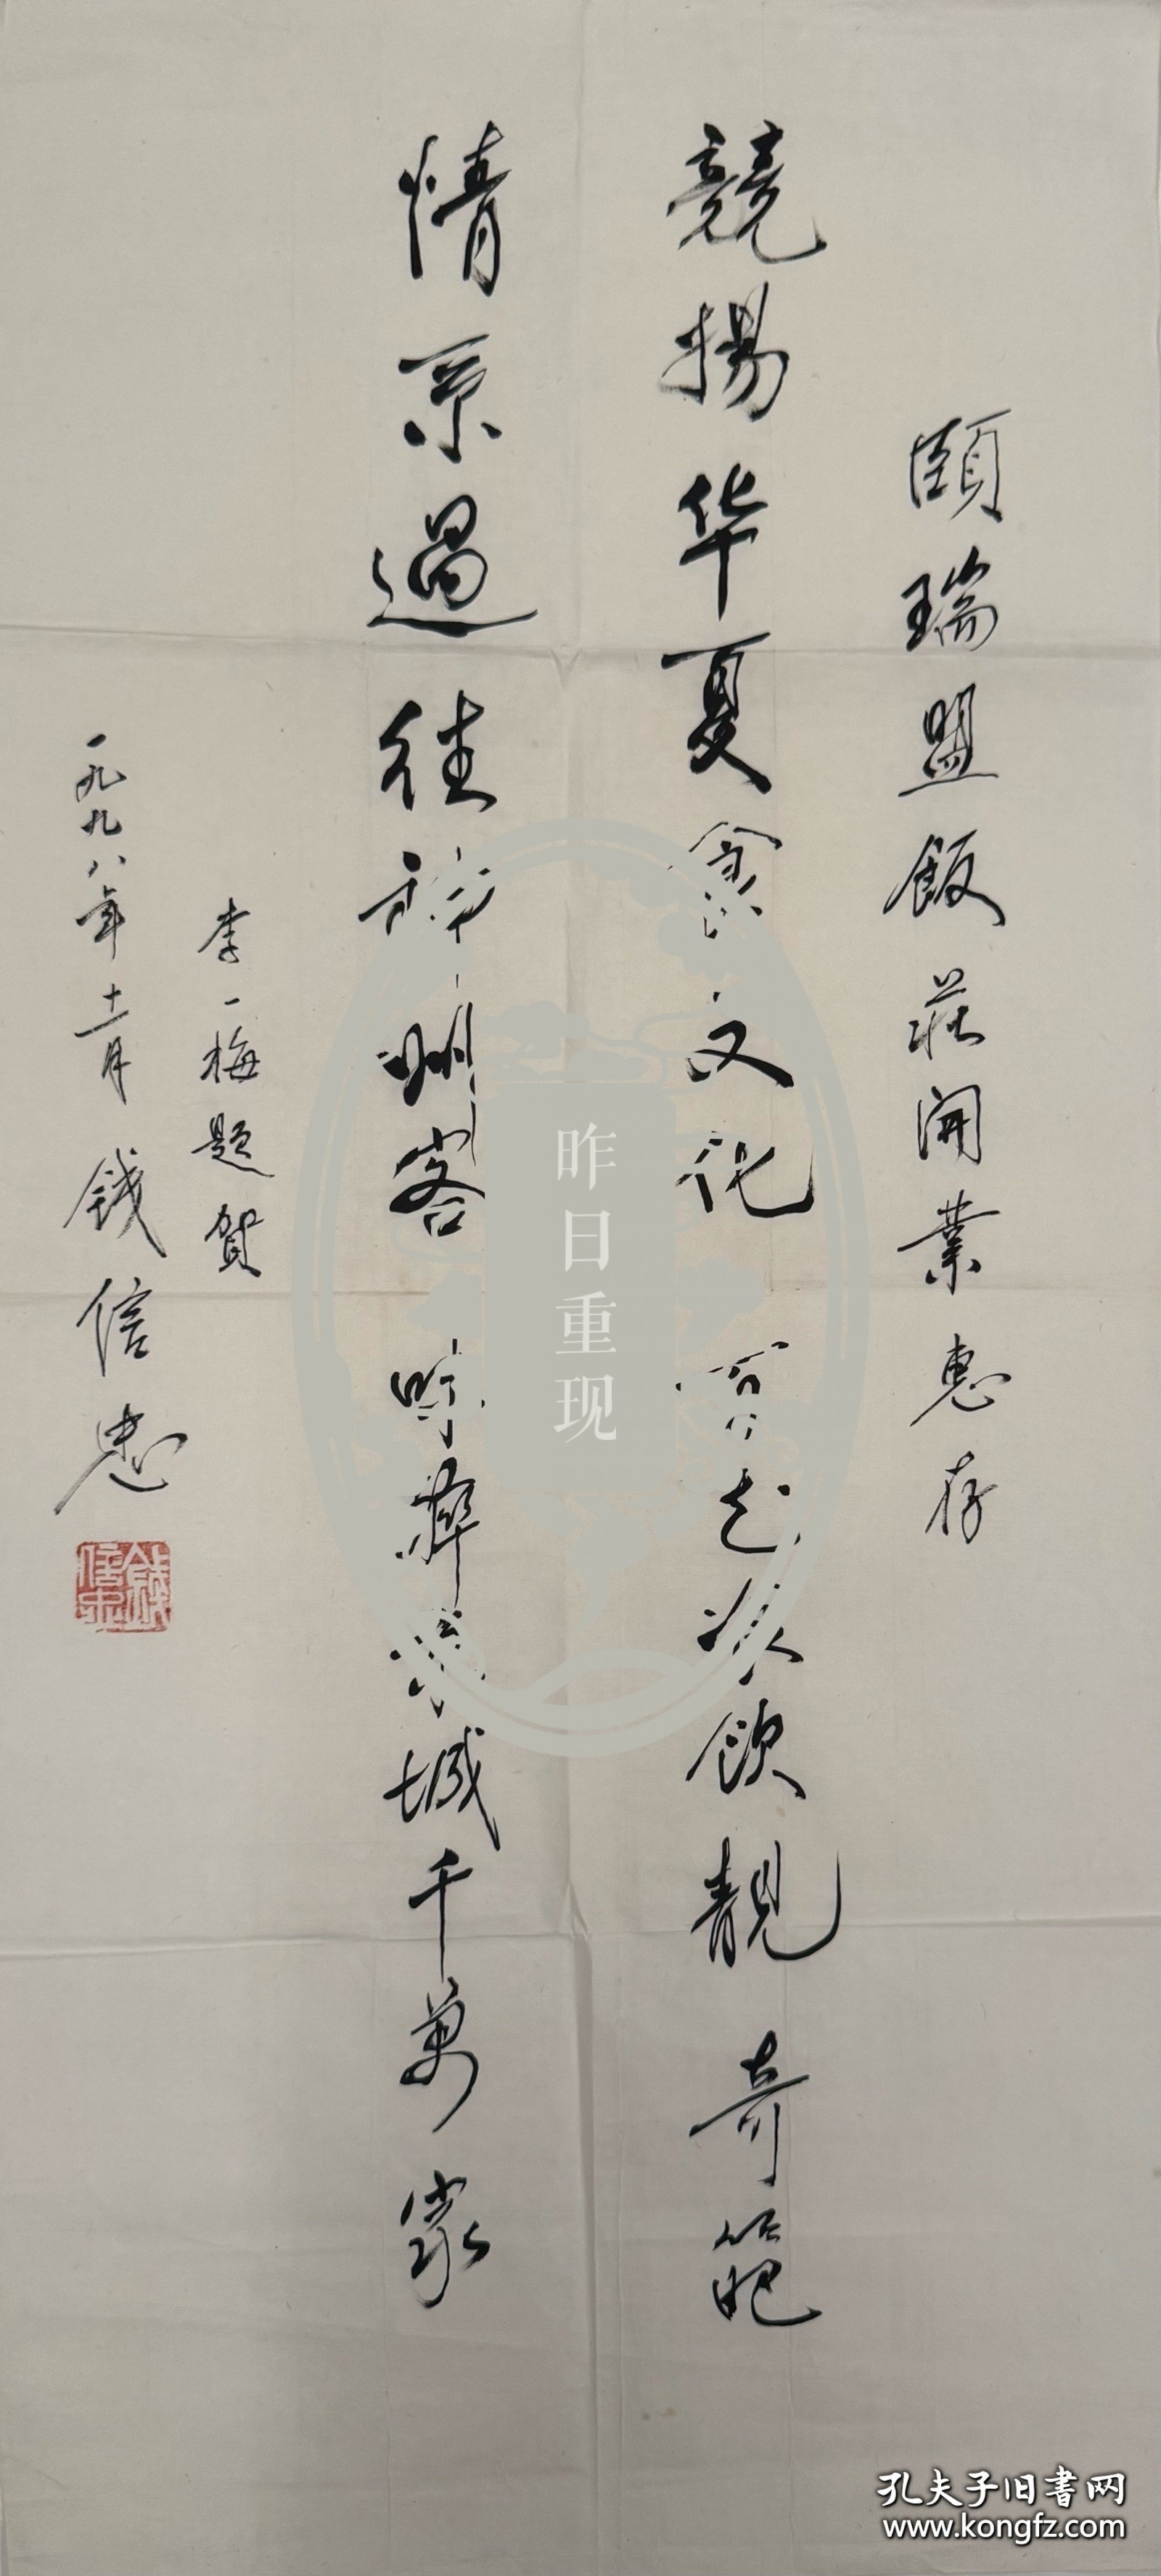 頤瑞盟飯莊開業惠存
競揚华夏食文化 飲靓奇範
情系過往神州客 味萃 城千萬家
李一梅題賀
一九九八年十一月 钱信忠
钱信忠
昨日重现
孔夫子旧書网
www.kongfz.com